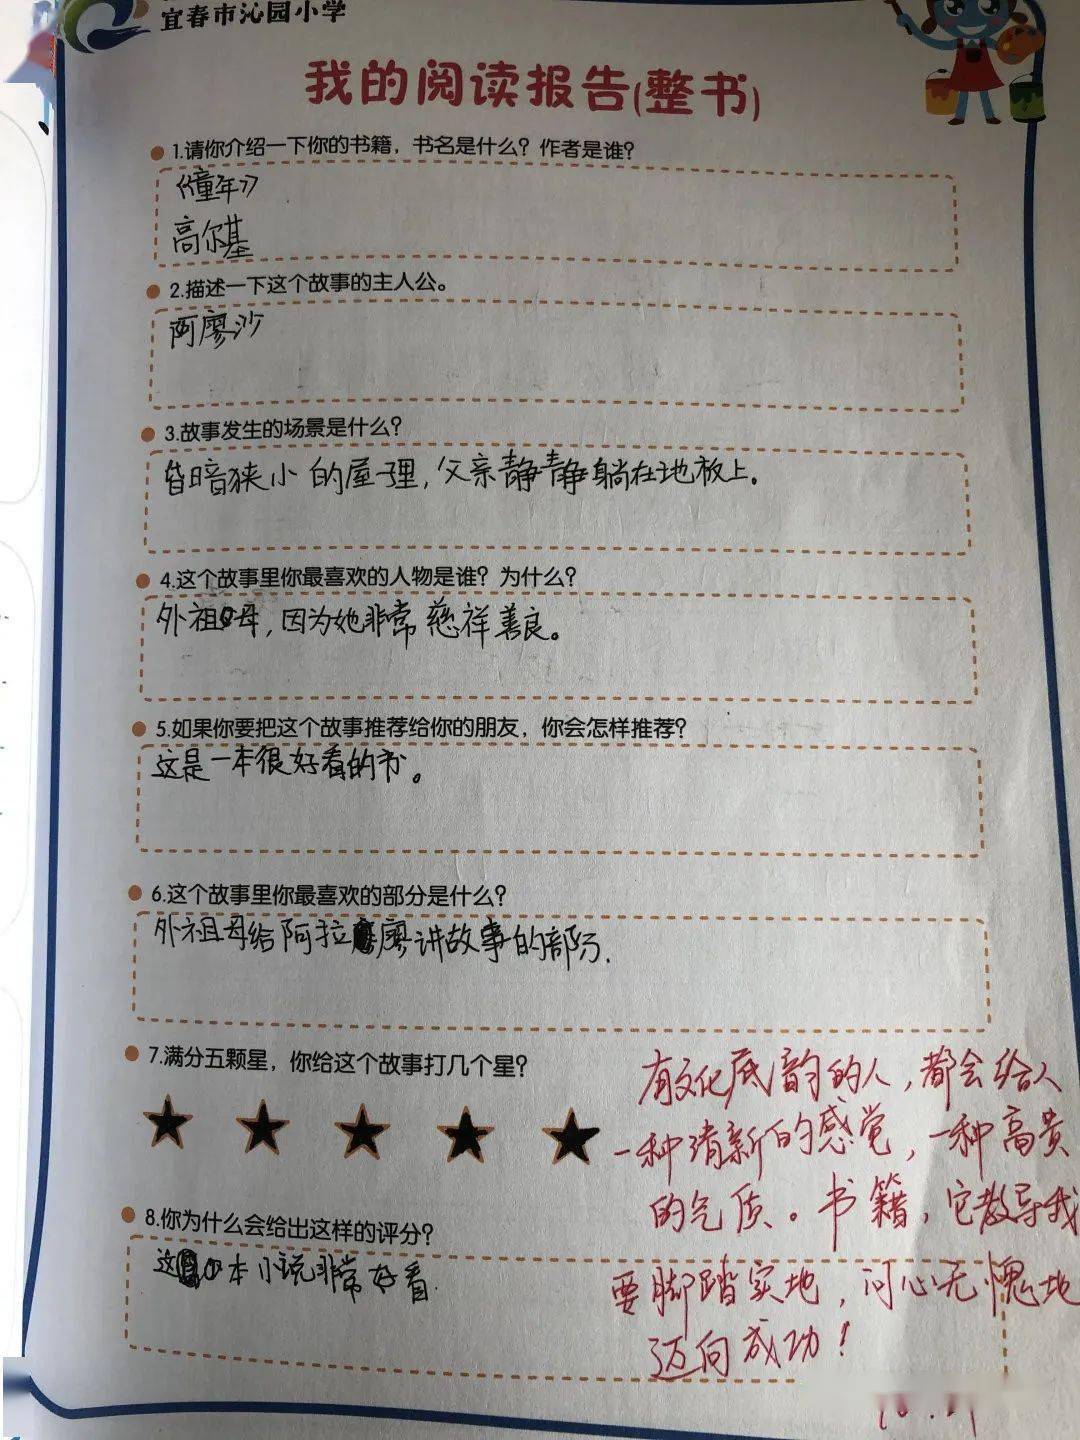 宜春市沁园小学
我的阅读报告(整书)
1.请你介绍一下你的书籍，书名是什么？作者是谁？
《童年》
高尔基
2.描述一下这个故事的主人公。
阿廖沙
3.故事发生的场景是什么？
昏暗狭小的屋子里，父亲静静躺在地板上。
4.这个故事里你最喜欢的人物是谁？为什么？
外祖母，因为她非常慈祥善良。
5.如果你要把这个故事推荐给你的朋友，你会怎样推荐？
这是一本很好看的书。
6.这个故事里你最喜欢的部分是什么？
外祖母给阿拉廖讲故事的部分.
7.满分五颗星，你给这个故事打几个星？
有文化底韵的人，都会给人
一种清新的感觉，一种高贵
的气质。书籍，它教导我
8.你为什么会给出这样的评分？
这本小说非常好看.
要脚踏实地，问心无愧地
迈向成功！